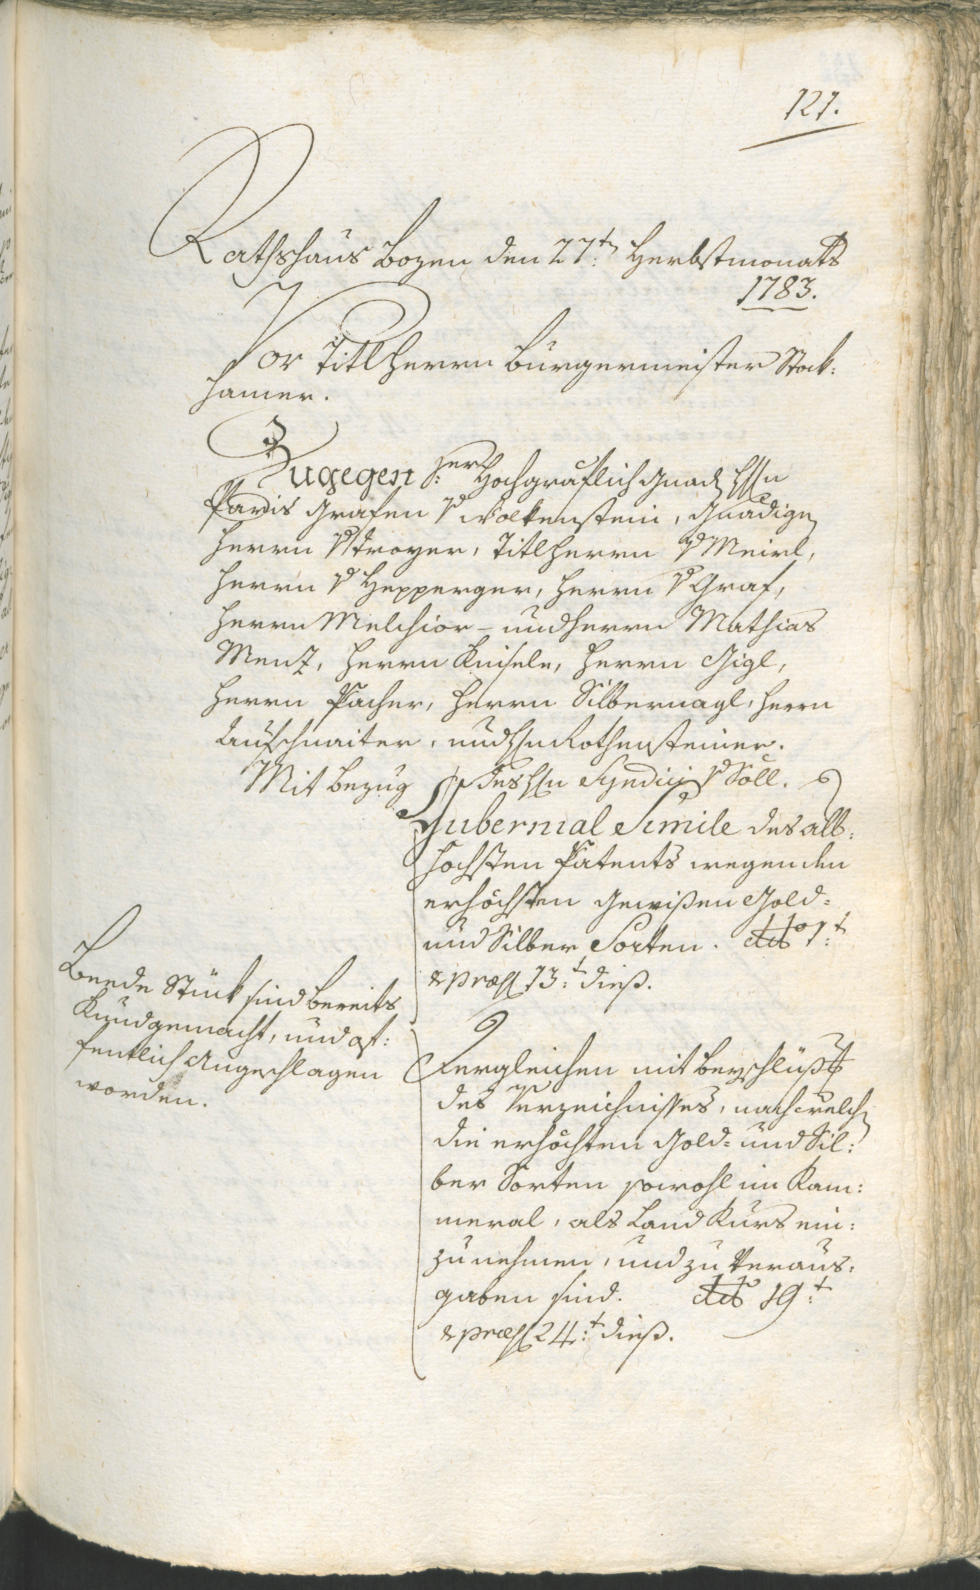 121.
Rathshaus Bozen den 27t: Herbstmonats
1783.
Vor Titl Herrn Burgermeister Stock:
hamer.
Zugegen Hochgräflich Gnad
Paris Grafen v Wolkenstein, Gnädigen
Herrn v Troyer, Titl Herrn v Meirl,
Herrn v Hepperger, Herrn v Graf,
Herrn Melchior - und Herrn Mathias
Menz, Herrn Kniselen, Herrn Gigl,
Herrn Pacher, Herrn Silbernagl, Herrn
Aufschnaiter, und Hn Rothensteiner.
Mit Bezug des Hn Syndici v Söll.
Gubernial Simile des all:
höchsten Patents wegen den
erhöchsten Gewißen Gold=
und Silber Sorten. ddo 1t:
& præs 13:t dieß.
Beede Stück sind bereits
Kundgemacht, und öf:
fentlich Angeschlagen
worden.
Dergleichen mit Beyschlüßung
des Verzeichnisses, nach welchen
die erhöchten Gold= und Sil:
ber Sorten sowohl im Kam:
meral, als Land Kurs ein:
zunehmen, und zu Veraus:
gaben sind. ddo 19:t
& præs 24:t dieß.